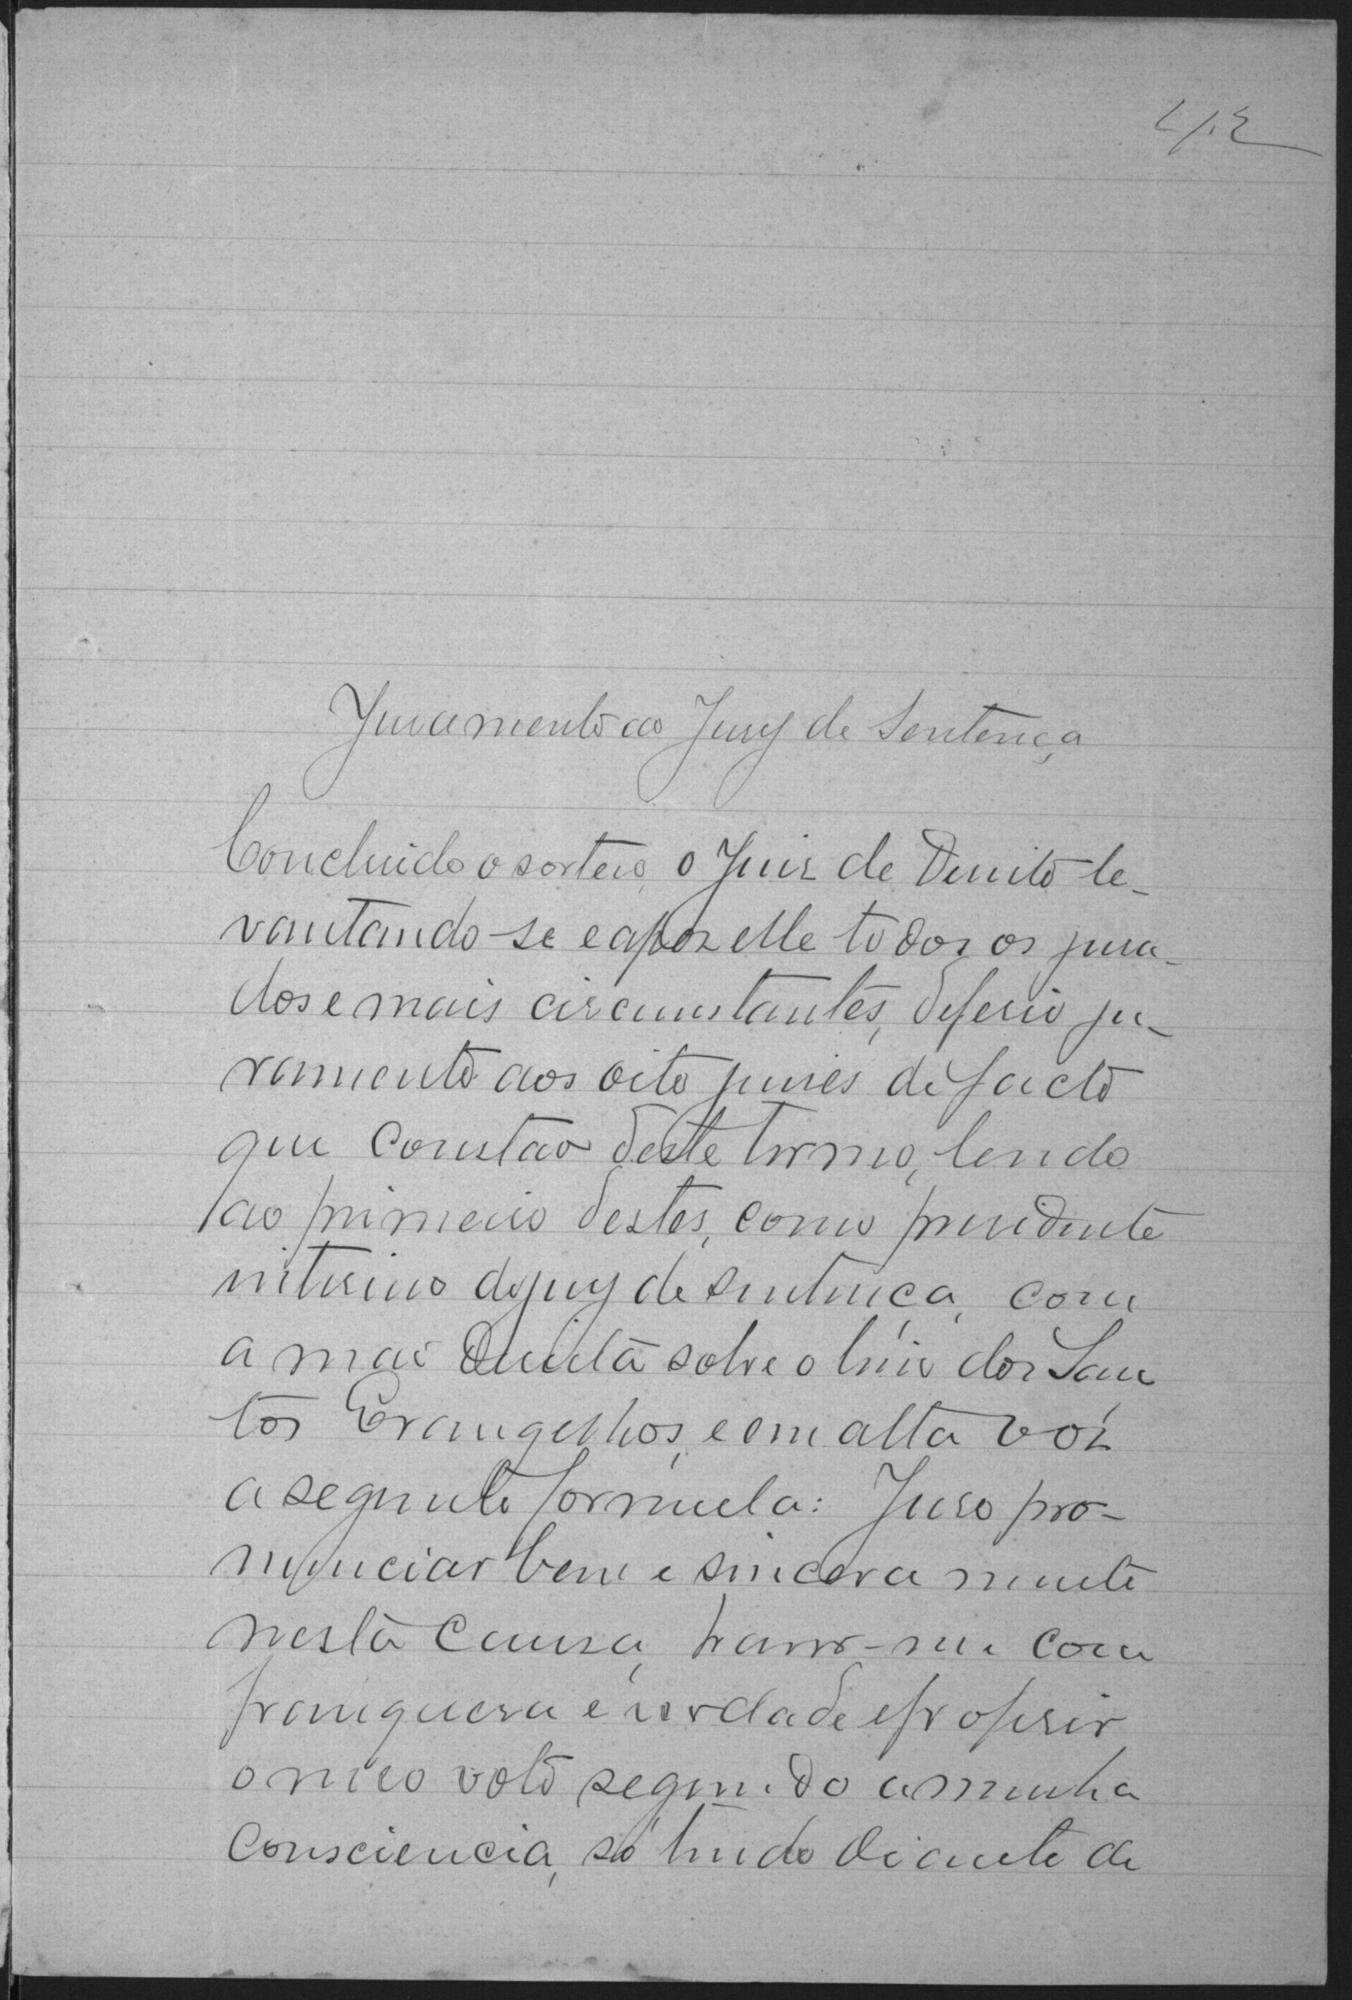 Juramento ao Jury de Sentença
Concluido o sorteio, o Juiz de Direito le-
vantando-se e apoz elle todos os jura-
dos e mais circumstantes, deferio ju-
ramento aos oito juizes de facto
que constão deste termo, lendo
ao primeiro destes, como presidente
interino do jury de sentença, com
a mão direita sobre o livro dos San
tos Evangelhos, e em alta voz
a seguinte formula: Juro pro-
nunciar bem e sincera mente
nesta causa, haver-me com
franqueza e verdade e proferir
o meo voto segundo a minha
consciencia, só tendo diante de